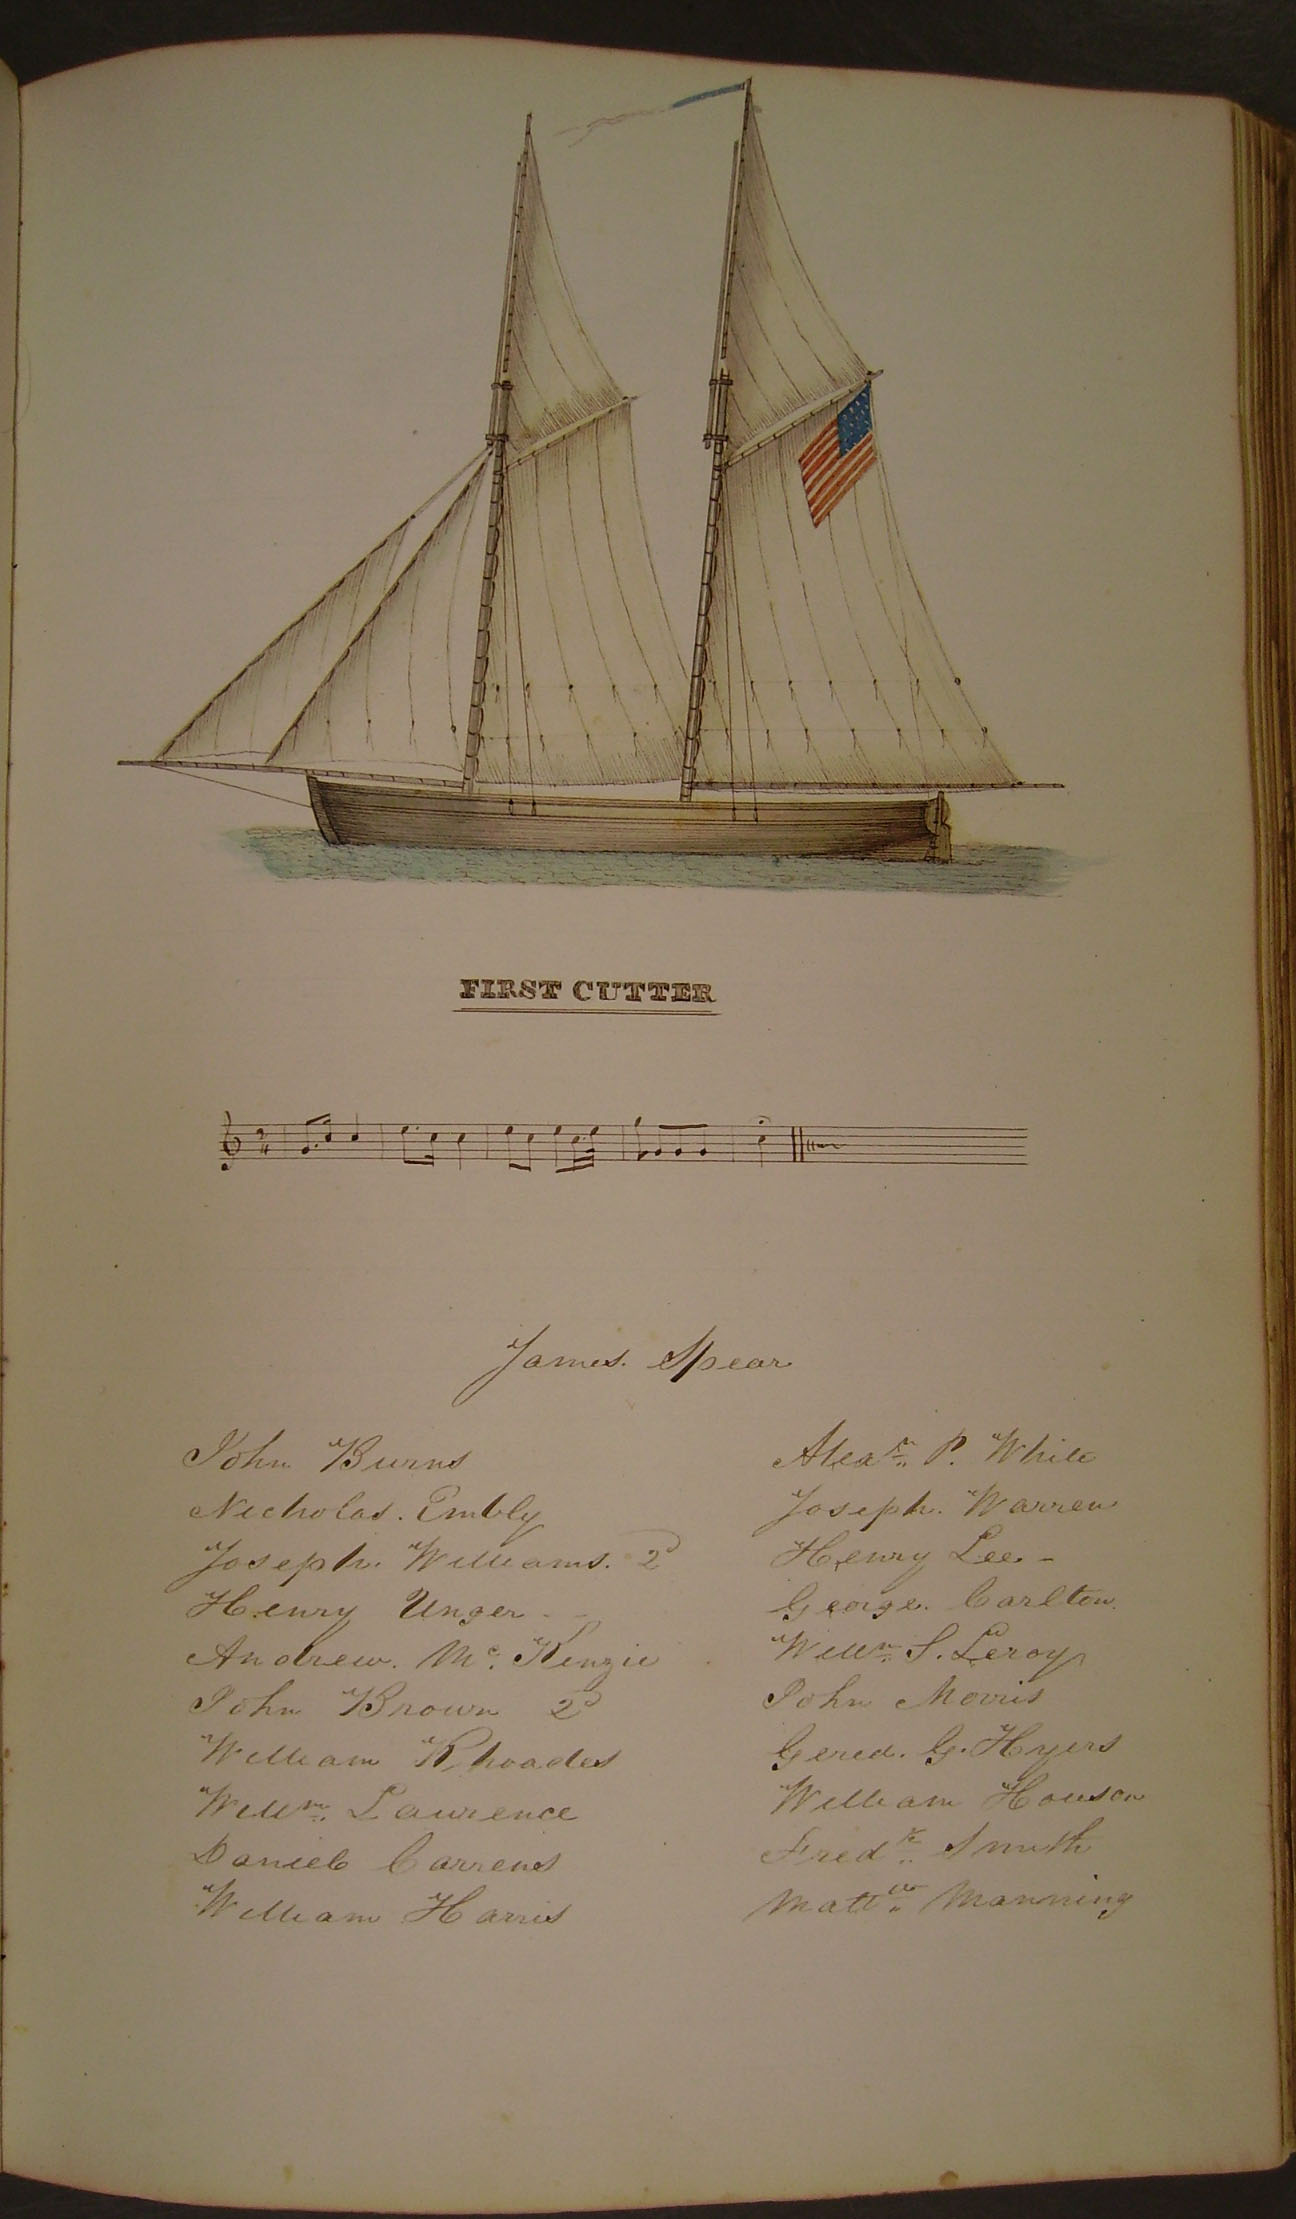 FIRST CUTTER
James. Spear
John Burns
Nicholas. Embly
Joseph. Williams. 2d
Henry Unger - -
Andrew. Mc. Kenzie
John Brown 2d
William Rhoades
Willm. Laurence
Daniel Carrens
William Harris
Alexr. P. White
Joseph. Warren
Henry Lee -
George. Carlton.
Willm. S. Leroy
John Morris
G. Hyers
William Houson
Fredk. Smith
Mattw. Manning